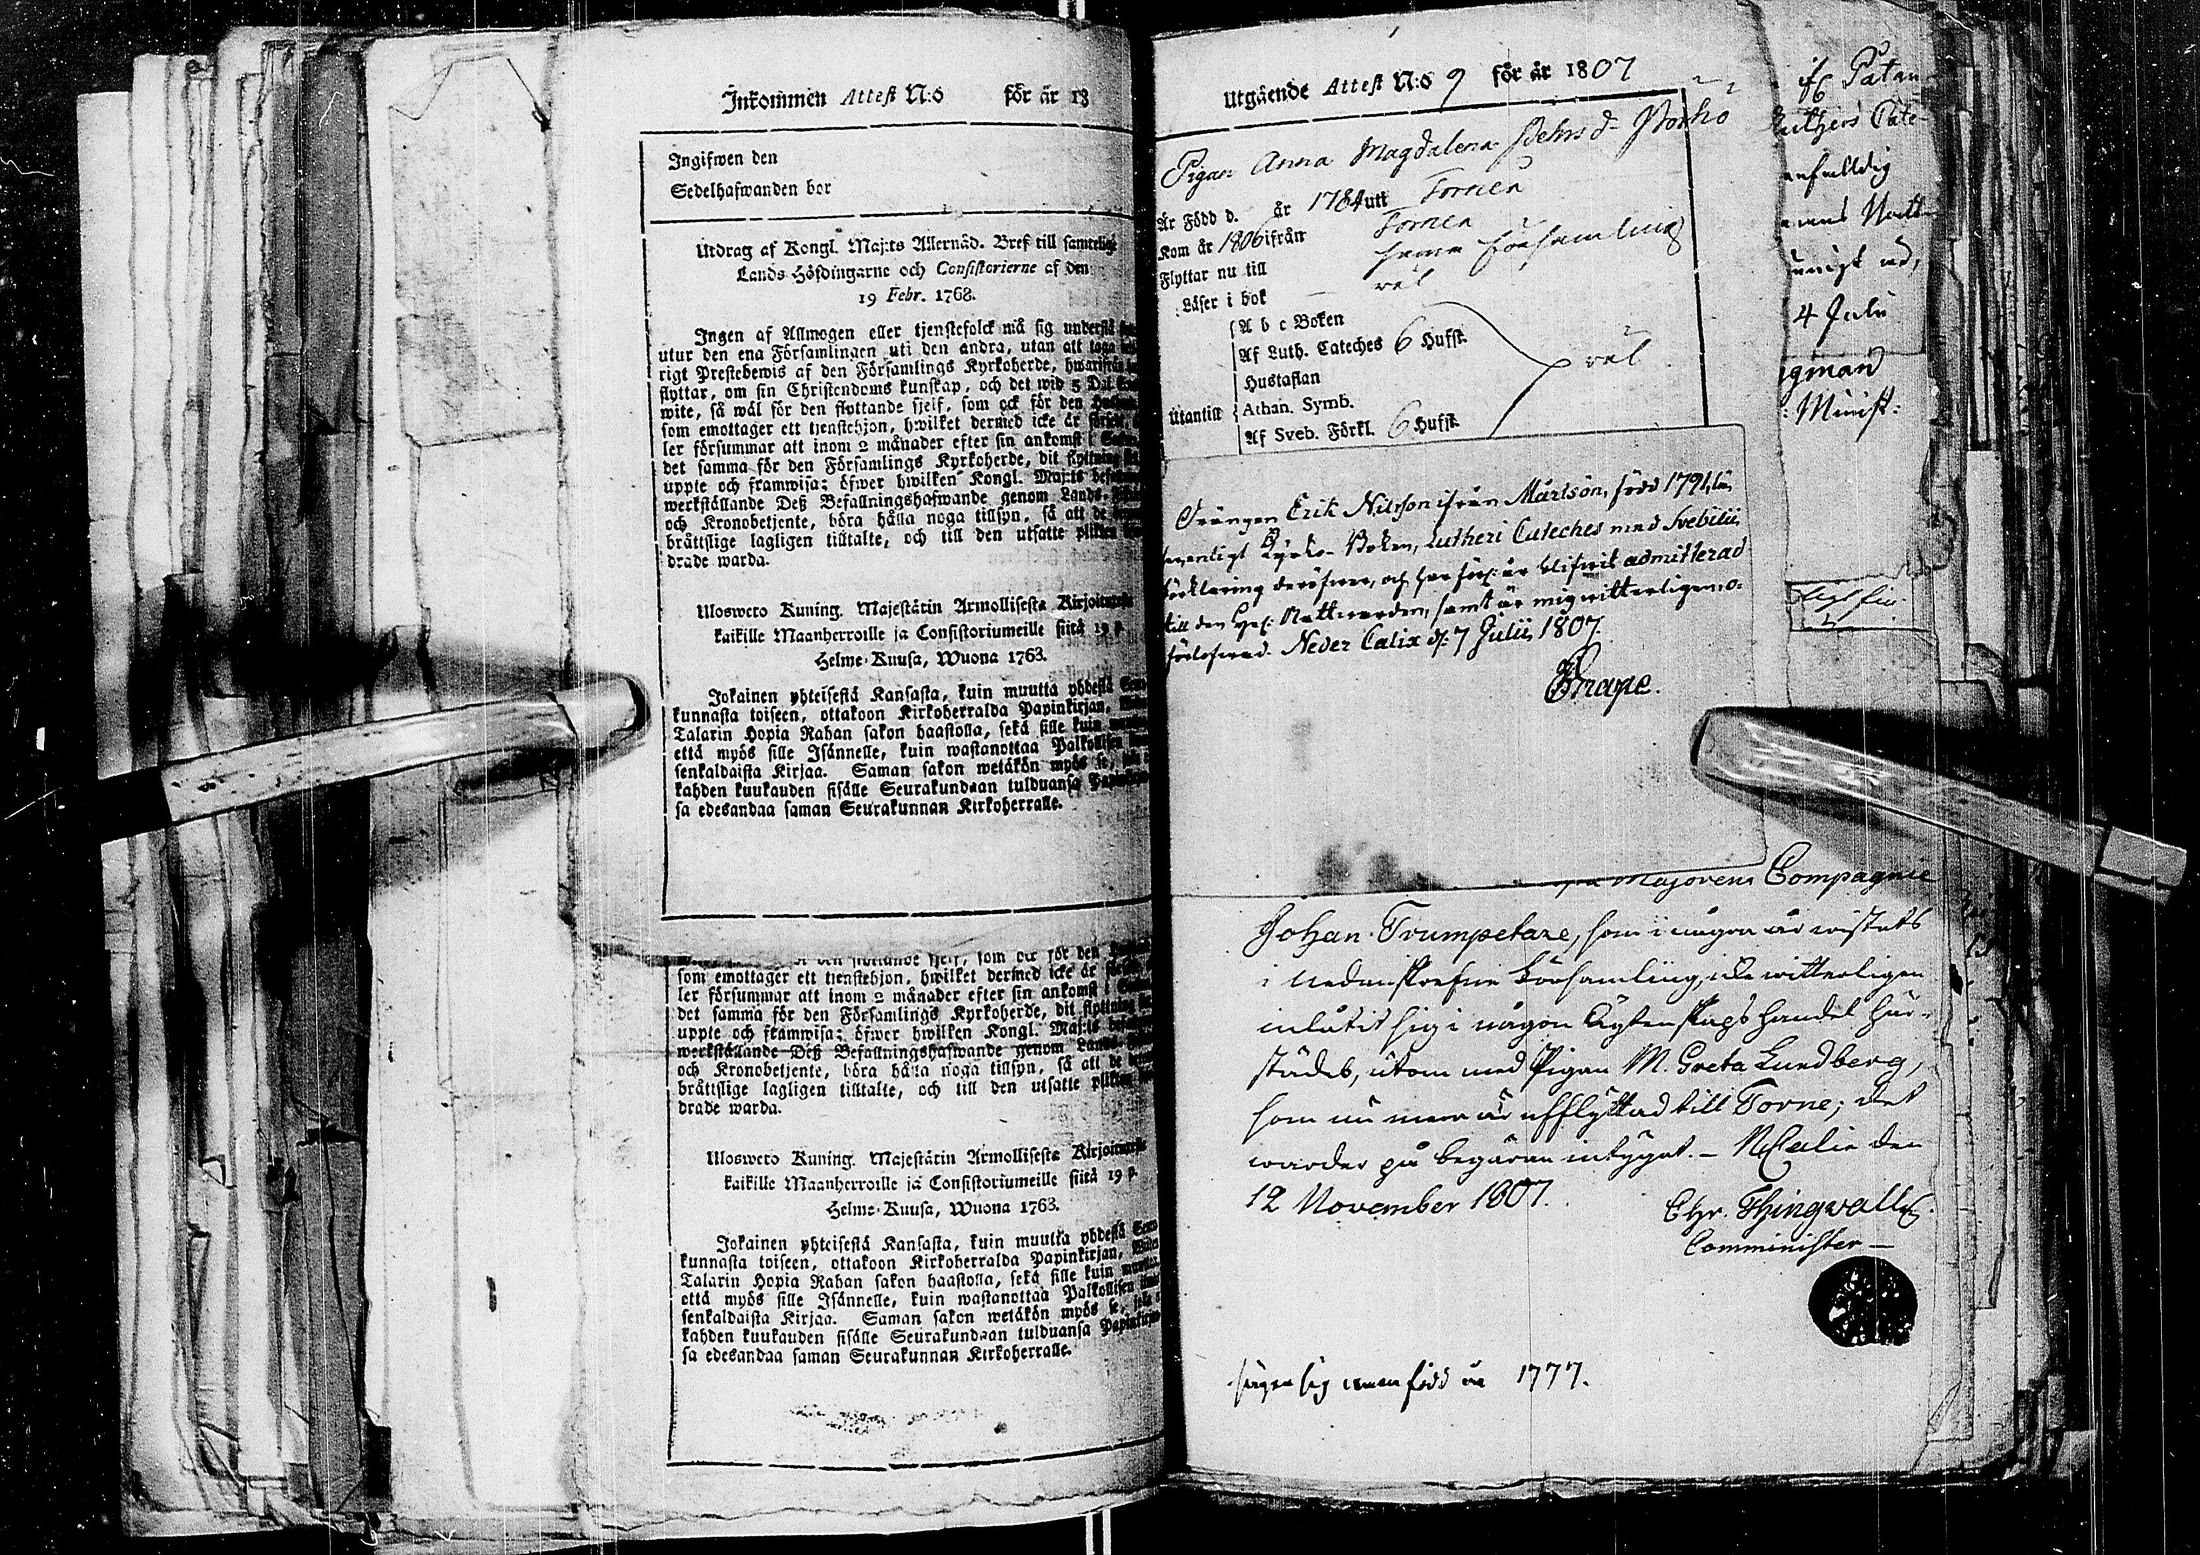 Inkommen Attest N:o för år 18
Ingifwen den
Sedelhafwanden bor
Utdrag af Kongl. Maj:ts Allernåd. Bref till samtelige
Lands-Höfdingarne och Consistorierne af den
19 Febr. 1768.
Ingen af Allmogen eller tjenstefolck må sig understå
utur den ena Församlingen uti den andra, utan att taga
rigt Prestebewis af den Församlings Kyrkoherde, hwarifrån
flyttar, om sin Christendoms kunskap, och det wid 5 Dal.
wite, så wäl för den flyttande sjelf, som ock för den
som emottager ett tjenstehjon, hwilket dermed icke är försedt,
ler försummar att inom 2 månader efter sin ankomst i
det samma för den Församlings Kyrkoherde, dit flyttning
uppte och framwisa; öfwer hwilken Kongl. Maj:ts
werkställande Deß Befallningshafwande genom Lands-
och Kronobetjente, böra hålla noga tillsyn, så att de
bråttslige lagligen tilltalte, och till den utsatte plikten
drade warda.
Uloswero Kuning. Majestätin Armollisesta Kirjoituxesta
kaikille Maanherroille ja Consistoriumeille siitä 19 p.
Helme-Kuusa, Wuona 1763.
Jokainen yhteisestä Kansasta, kuin muutta yhdestä Seura-
kunnasta toiseen, ottakoon Kirkoherralda Papinkirjan,
Talarin Hopia Rahan sakon haastolla, sekä sille kuin
että myös sille Isännelle, kuin wastanottaa Palkollisen
senkaldaista Kirjaa. Saman sakon wetäkön myös se, joka
kahden kuukauden sisälle Seurakundaan tulduansa Papinkirjan-
sa edesandaa saman Seurakunnan Kirkoherralle.
den flyttande sjelf, som ock för den
som emottager ett tjenstehjon, hwilket dermed icke är
ler försummar att inom 2 månader efter sin ankomst i
det samma för den Församlings Kyrkoherde, dit flyttning
uppte och framwisa; öfwer hwilken Kongl. Maj:ts
werkställande Deß Befallningshafwande genom Lands-
och Kronobetjente, böra hålla noga tillsyn, så att de
bråttslige lagligen tilltalte, och till den utsatte plikten
drade warda.
Uloswero Kuning. Majestätin Armollisesta Kirjoituxesta
kaikille Maanherroille ja Consistoriumeille siitä 19 p.
Helme-Kuusa, Wuona 1763.
Jokainen yhteisestä Kansasta, kuin muutta yhdestä Seura-
kunnasta toiseen, ottakoon Kirkoherralda Papinkirjan,
Talarin Hopia Rahan sakon haastolla, sekä sille kuin
että myös sille Isännelle, kuin wastanottaa Palkollisen
senkaldaista Kirjaa. Saman sakon wetäkön myös se, joka
kahden kuukauden sisälle Seurakundaan tulduansa Papinkirjan-
sa edesandaa saman Seurakunnan Kirkoherralle.
Utgående Attest N:o 9 för år 1807
Pigan Anna Magdalena
Är Född d. år 1784 uti Torneå
Kom år 1806 ifrån Torneå
Flyttar nu till samma församling
Läser i bok väl
A b c Boken
Af Luth. Cateches 6 Hufst.
väl
Hustaflan
Utantill
Athan. Symb.
Af Sveb. Förkl. 6 Hufst.
Drängen Erik Nilsson ifrån Mårtsön, född 1791, lä-
ser enligt Kyrko-Boken, Lutheri Cateches med Svebilii
förklaring deröfwer, och har förl: år blifwit admitterad
till den Hel: Nattwarden, samt är mig witterligen o-
förlofwad. Neder Calix d: 7 Julii 1807.
Brape.
Majorens Compagnie
Johan Trumpetare, som i någon år wistats
i nedanskrefne Församling, icke witterligen
inlåtit sig i någon Ägtenskaps handel här-
städes, utom med Pigan M. Greta Lundberg,
som nu mera är afflyttad till Torne; det
warder på begäran intygat. – N Calix den
12 November 1807.
Chr. Thingvall
Comminister –
säger sig wara född år 1777.
Luthers Cate-
enfalldig
4 Julii
gman
Minist: